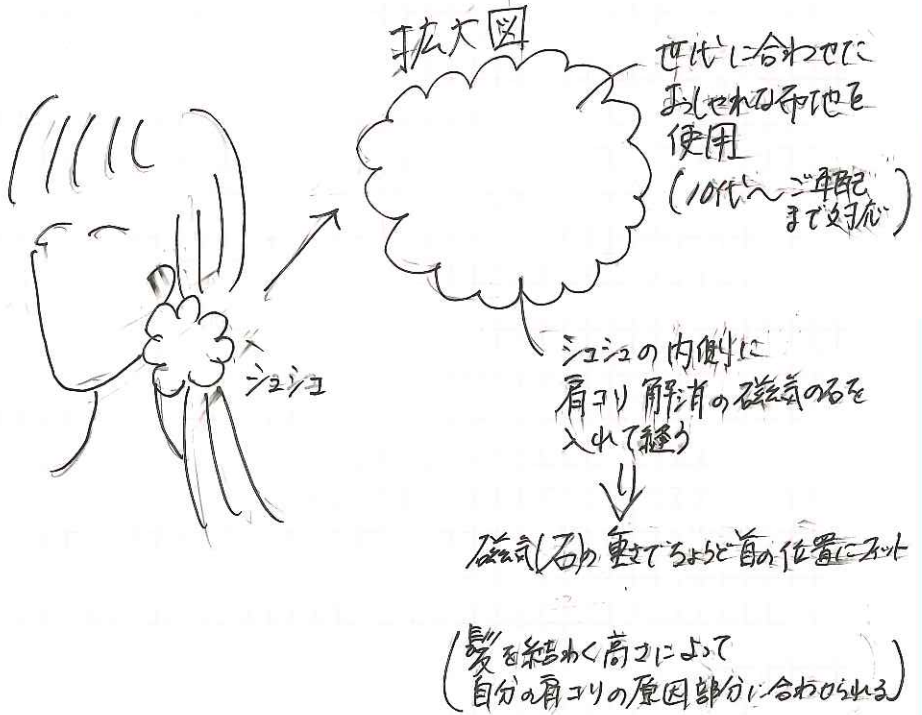 拡大図
世代に合わせた
おしゃれな布地を
使用
(10代〜ご年配
まで対応)
シュシュ
シュシュの内側に
肩コリ解消の磁気の石を
入れて縫う
磁気(石)の重さでちょうど首の位置にフィット
(髪を結わく高さによって
自分の肩コリの原因部分に合わせられる)